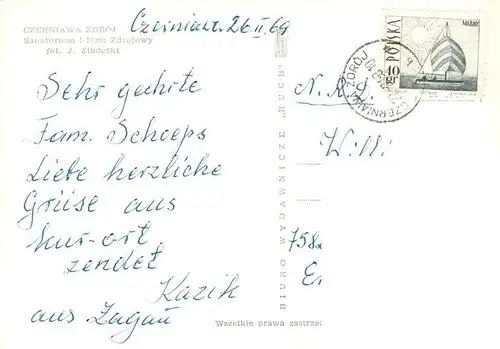 CZERNIAWA ZDRÓJ
Sanatorium i Dom Zdrojowy
fot. J. Siudecki
Czerniawa. 26.II.69
Sehr geehrte
Fam. Schoeps
Liebe herzliche
Grüse aus
kur-ort
zendet
Kazik
aus Żagań
BIURO WYDAWNICZE „RUCH"
Wszelkie prawa zastrzeż
MAZURY
POLSKA
10 gr
CZERNIAWA ZDRÓJ
N.R.D.
Willi
758
E.